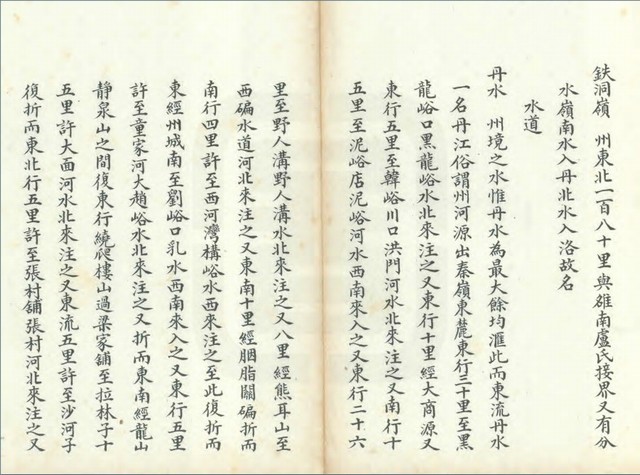 鉄洞嶺　州東北一百八十里與雒南盧氏接界又有分
水嶺南水入丹北水入洛故名
水道
丹水　州境之水惟丹水為最大餘均滙此而東流丹水
一名丹江俗謂州河源出秦嶺東麓東行三十里至黑
龍峪口黑龍峪水北來注之又東行十里經大商源又
東行五里至韓峪川口洪門河水北來注之又南行十
五里至泥峪店泥峪河水西南來入之又東行二十六
里至野人溝野人溝水北來注之又八里經熊耳山至
西碥水道河北來注之又東南十里經胭脂關碥折而
南行四里許至西河灣構峪水西來注之至此復折而
東經州城南至劉峪口乳水西南來入之又東行五里
許至童家河大趙峪水北來注之又折而東南經龍山
靜泉山之間復東行繞爬樓山過梁家舖至拉林子十
五里許大面河水北來注之又東流五里許至沙河子
復折而東北行五里許至張村舖張村河北來注之又